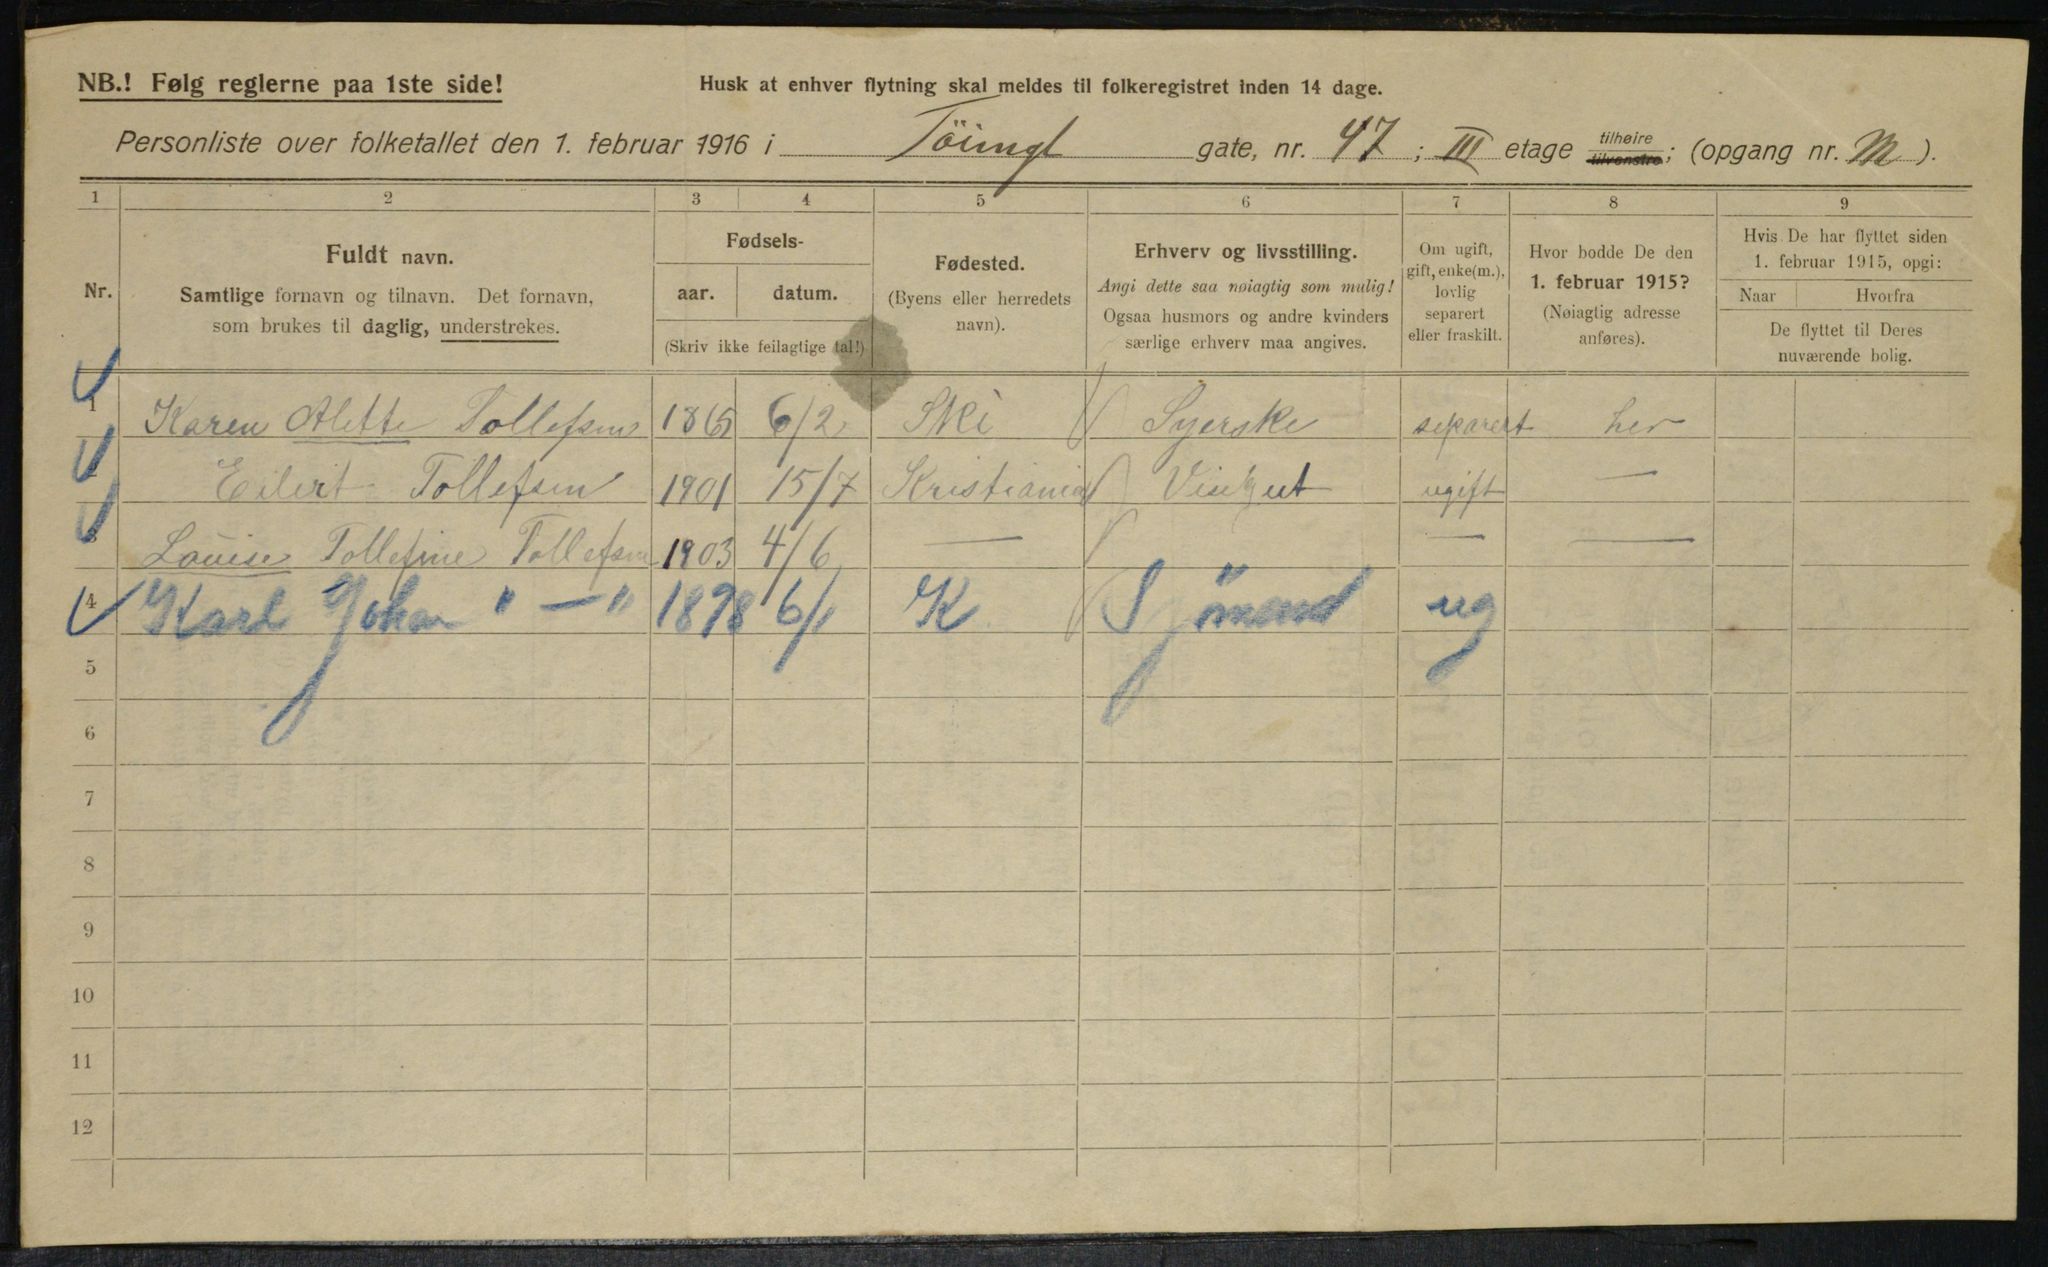 NB.! Følg reglerne paa 1ste side!
Husk at enhver flytning skal meldes til folkeregistret inden 14 dage.
Personliste over folketallet den 1. februar 1916 i Töiengt gate, nr. 47 ; III etage tilhøire tilvenstre; (opgang nr. M ).
1 2 3 4 5 6 7 8 9
Nr.
Fuldt navn.
Samtlige fornavn og tilnavn. Det fornavn,
som brukes til daglig, understrekes.
Fødsels-
aar. datum.
(Skriv ikke feilagtige tal!)
Fødested.
(Byens eller herredets
navn).
Erhverv og livsstilling.
Angi dette saa nøiagtig som mulig!
Ogsaa husmors og andre kvinders
særlige erhverv maa angives.
Om ugift,
gift, enke(m.),
lovlig
separert
eller fraskilt.
Hvor bodde De den
1. februar 1915?
(Nøiagtig adresse
anføres).
Hvis De har flyttet siden
1. februar 1915, opgi:
Naar Hvorfra
De flyttet til Deres
nuværende bolig.
1 Karen Alette Tollefsen 1865 6/2 Ski Syerske separert her
2 Eilert Tollefsen 1901 15/7 Kristiania Visergut ugift —
3 Louise Tollefine Tollefsen 1903 4/6 — — —
4 Karl Johan " — " 1898 6/1 K Sjömand ug
5
6
7
8
9
10
11
12